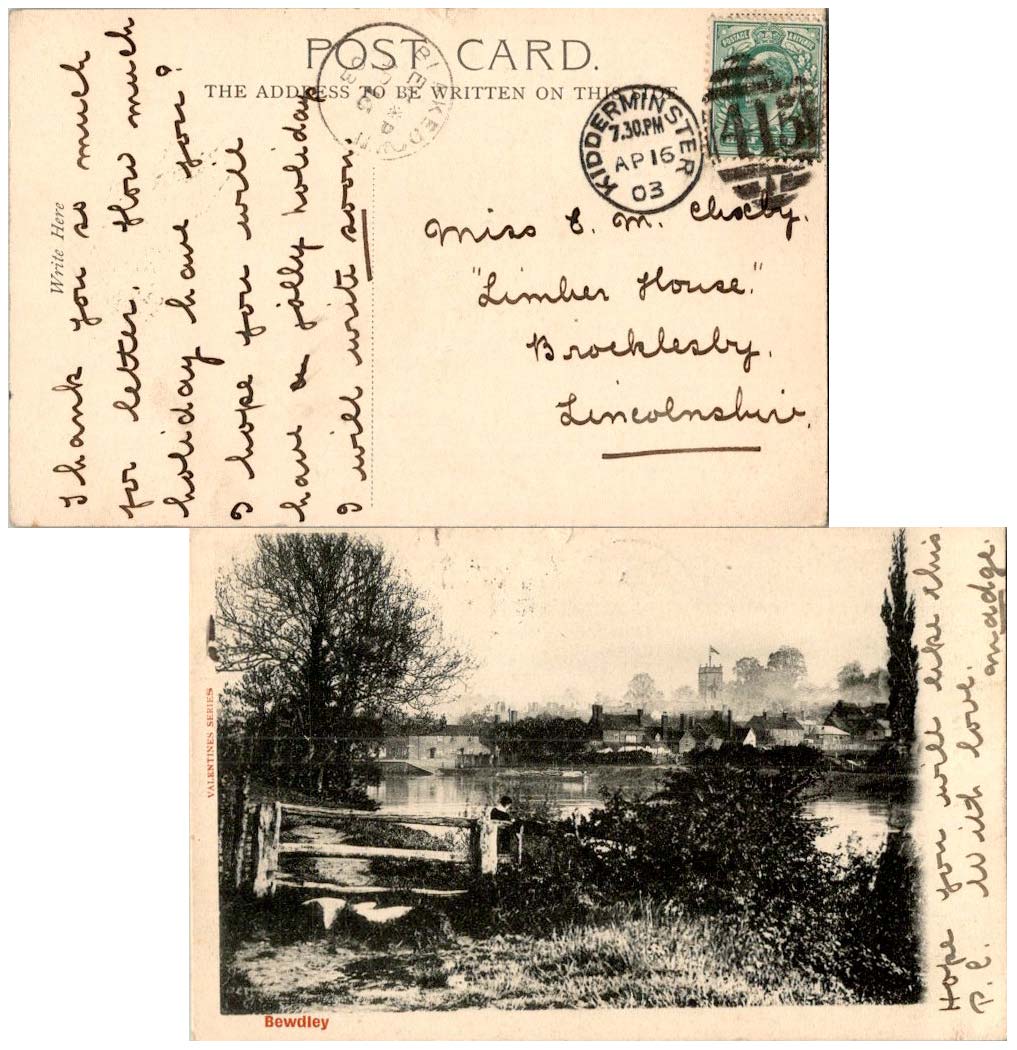 POST CARD.
THE ADDRESS TO BE WRITTEN ON THIS SIDE
Write Here
Thank you so much
for letter. How much
holiday have you?
I hope you will
have a jolly holiday
I will write soon.
KIDDERMINSTER
7.30.PM
AP 16
03
POSTAGE
415
Miss E. M. Cheeby.
"Limber House."
Brocklesby.
Lincolnshire.
VALENTINES SERIES
Bewdley
Hope you will like this
P.C. With love.
Madge.